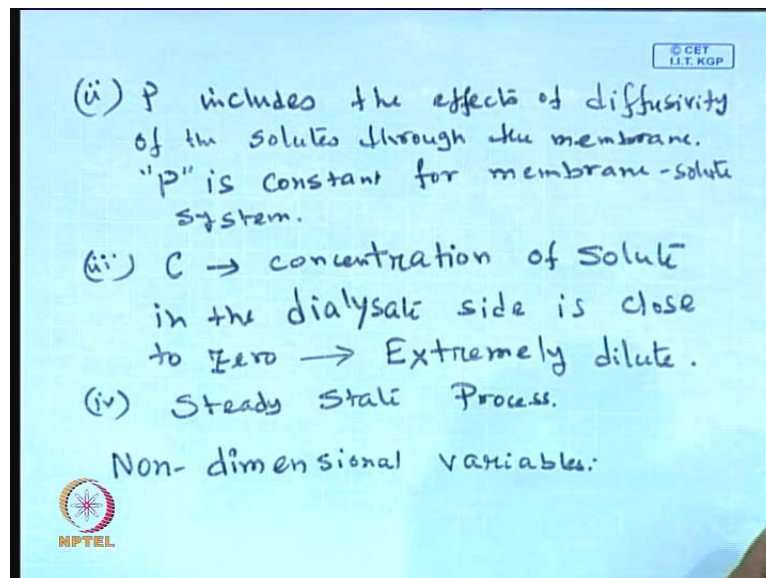 © CET
I.I.T. KGP
(ii) P includes the effects of diffusivity
of the solutes through the membrane.
"P" is constant for membrane-solute
system.
(iii) C → concentration of solute
in the dialysate side is close
to zero → Extremely dilute.
(iv) Steady State Process.
Non-dimensional variables:
NPTEL